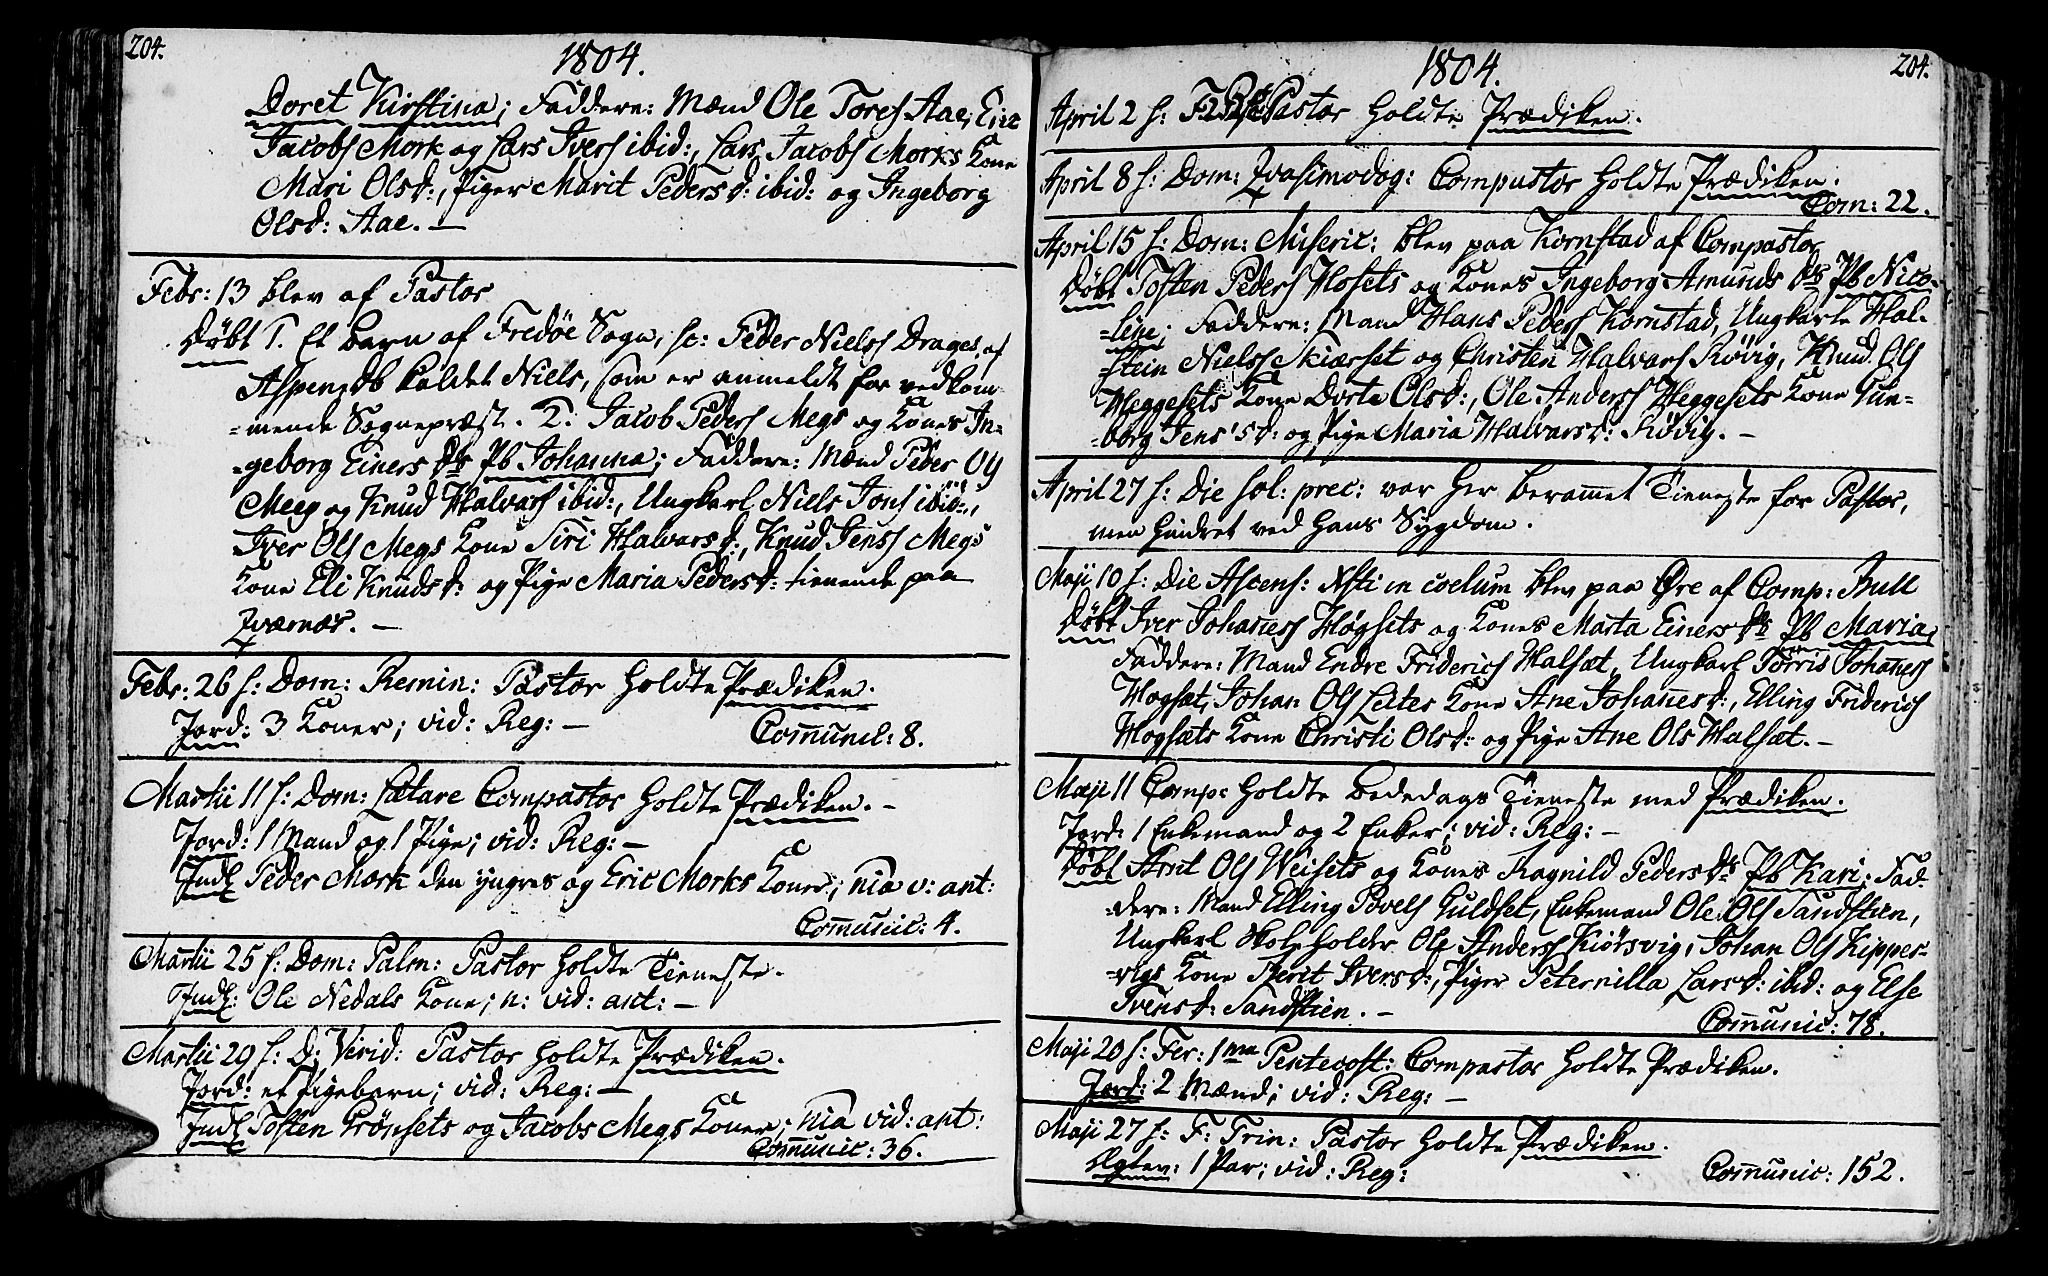 204.
1804.
Doret Kirstina; Faddere: Mænd Ole Tores Aae, Einr
Jacobs Mork og Lars Ivers ibid:, Lars Jacobs Morks Kone
Mari Olsd:, Piger Marit Pedersd: ibid: og Ingeborg
Olsd: Aae. —
Febr: 13 blev af Pastor
Døbt 1. Et barn af Fredøe Sogn, sc: Peder Nielss Drages af
Aspen, db kaldet Niels, som er anmeldt for vedkom-
-mende Sognepræst. 2. Jacob Peders Megs og Kones In-
-geborg Einers ds Pb Johanna; Faddere: Mænd Peder Ols
Meeg og Knud Halvars ibid:, Ungkarl Niels Jons ibid:,
Iver Ols Megs Kone Siri Halvarsd:, Knud Jenss Megs
Kone Eli Knudsd: og Pige Maria Pedersd: tienende paa
Qværnæs. —
Febr: 26 s: Dom: Remin: Pastor holdte Prædiken.
Jord: 3 Koner; vid: Reg: —
Communic: 8.
Martii 11 s: Dom: Lætare Compastor holdte Prædiken. —
Jord: 1 Mand og 1 Pige; vid: Reg: —
Indl Peder Mork den yngres og Eric Morks Koner; nia v: ant:
Communic: 4.
Martii 25 s: Dom: Palm: Pastor holdte Tieneste.
Indl: Ole Nedals Kone; n: vid: ant: —
Martii 29 s: D: Virid: Pastor holdte Prædiken.
Jord: et Pigebarn; vid: Reg: —
Indl Tosten Grønsets og Jacobs Megs Koner; nia vid: ant:
Communic: 36.
204.
1804.
April 2 s: F: Pastor holdte Prædiken.
April 8 s: Dom: Qvasimodog: Compastor holdte Prædiken.
Com: 22.
April 15 s: Dom: Miseric: blev paa Kornstad af Compastor
Døbt Tosten Peders Hosets og Kones Ingeborg Amunds ds Pb Nico-
-line; Faddere: Mand Hans Peders Kornstad, Ungkarle Hal-
-stein Nielss Skiærset og Christen Halvars Røvig, Knud Ols
Heggesets Kone Dorte Olsd:, Ole Anderss Heggesets Kone Gun-
-borg Jens'sd: og Pige Maria Halvarsd: Røvig. —
April 27 s: Die sol: prec: var her berammet Tieneste for Pastor,
men hindret ved hans Sygdom.
Maji 10 s: Die Ascens: Xsti in coelum blev paa Øre af Comp: Bull
Døbt Iver Johanness Høgsets og Kones Marta Einers ds Pb Maria;
Faddere: Mand Endre Friderics Halsæt, Ungkarl Torris Johaness
Hogsæt, Johan Ols Leites Kone Ane Johanesd:, Elling Friderics
Hogsæts Kone Christi Olsd: og Pige Ane Ols Halsæt. —
Maji 11 Comp: holdte Bededags Tieneste med Prædiken.
Jord: 1 Enkemand og 2 Enker; vid: Reg: —
Døbt Arnt Ols Weisets og Kones Ragnild Peders ds Pb Kari; Fad-
-dere: Mand Elling Povels Guldset, Enkemand Ole Ols Sandstien,
Ungkarl Skoleholder Ole Anderss Kiørsvig, Johan Ols Kipper-
-vigs Kone Berit Iversd:, Piger Peternilla Larsd: ibid: og Else
Svensd: Sandstien. —
Communic: 78.
Maji 20 s: Fer: 1ma Pentecost: Compastor holdte Prædiken.
Jord: 2 Mænd; vid: Reg: —
Maji 27 s: F: Trin: Pastor holdte Prædiken.
Ægtev: 1 Par; vid: Reg:
Communic: 152.